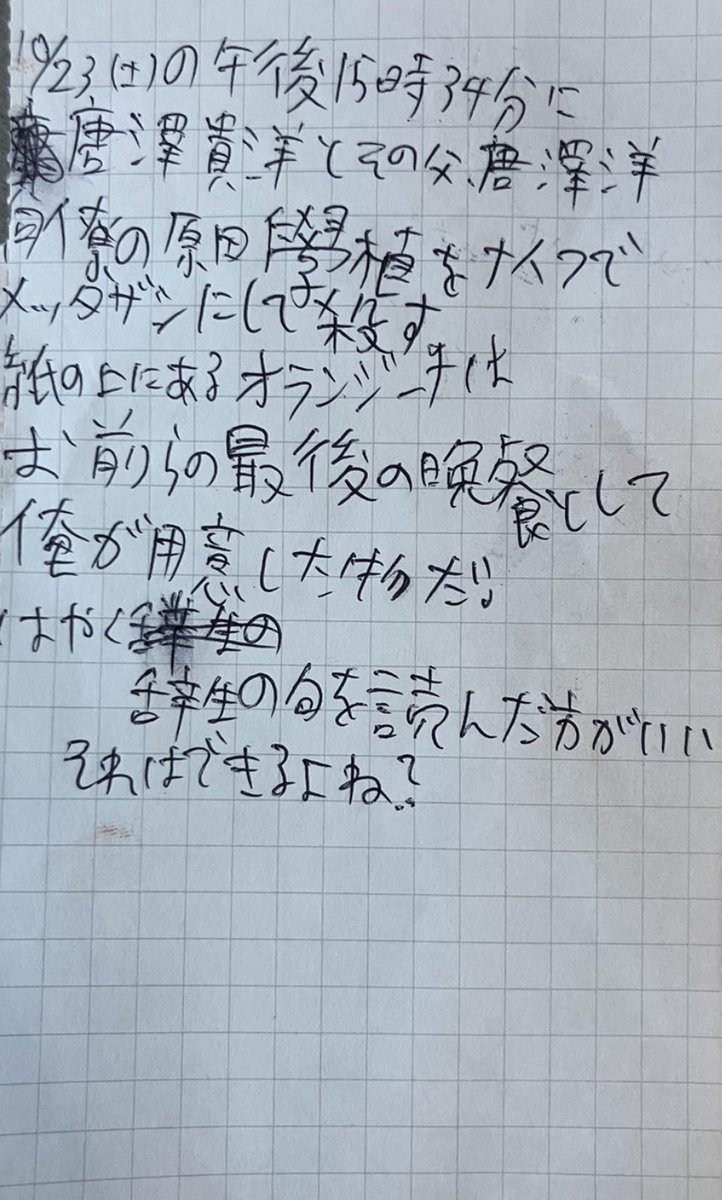 10/23(土)の午後15時34分に
唐澤貴洋とその父、唐澤洋
同僚の原田學植をナイフで
メッタザシにして殺す
紙の上にあるオランジーナは
お前らの最後の晩餐として
俺が用意した物だ!
はやく
辞生の句を読んだ方がいい
それはできるよね?